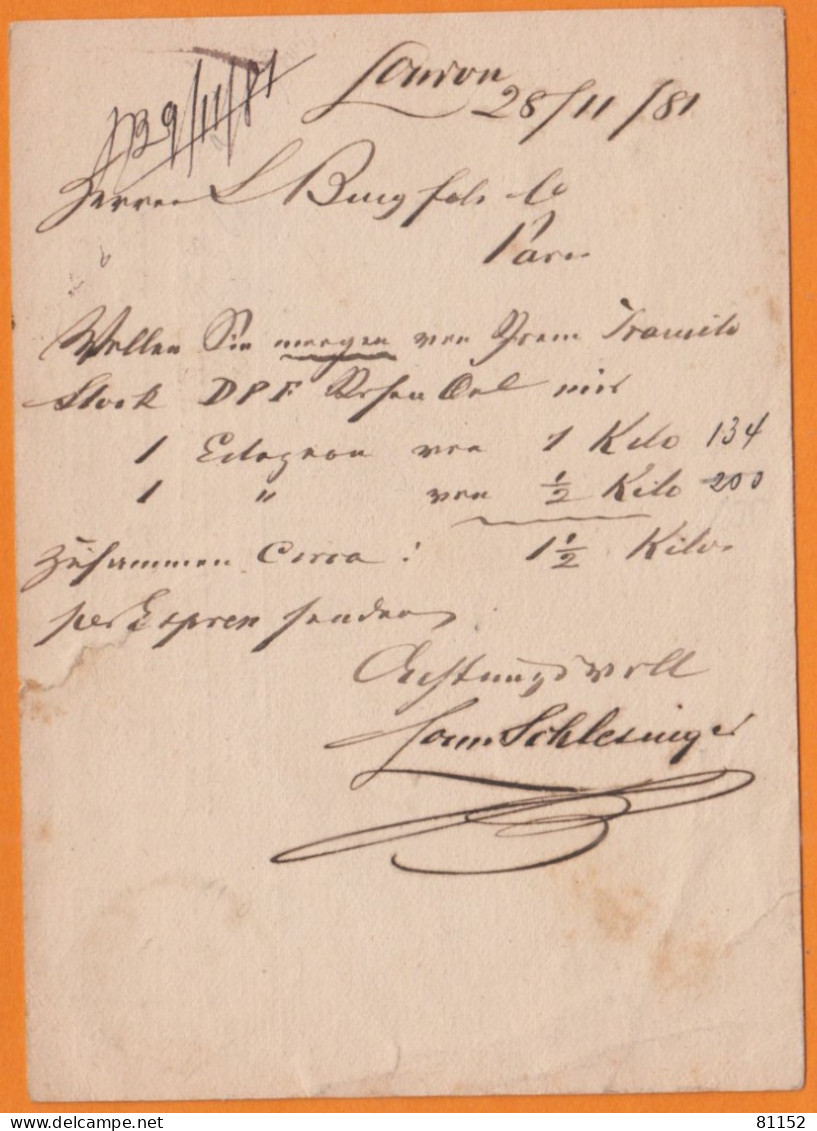 London
28/11/81
29/11/81
Herren L Bing fils & Co
Paris
Wollen Sie morgen von Ihrem Transito
Stock DPF Rosen Oel mir
1 Estagnon von 1 Kilo 134
1 " von ½ Kilo 200
Zusammen Circa: 1½ Kilos
per Express senden
Achtungsvoll
Schlesinger
81152